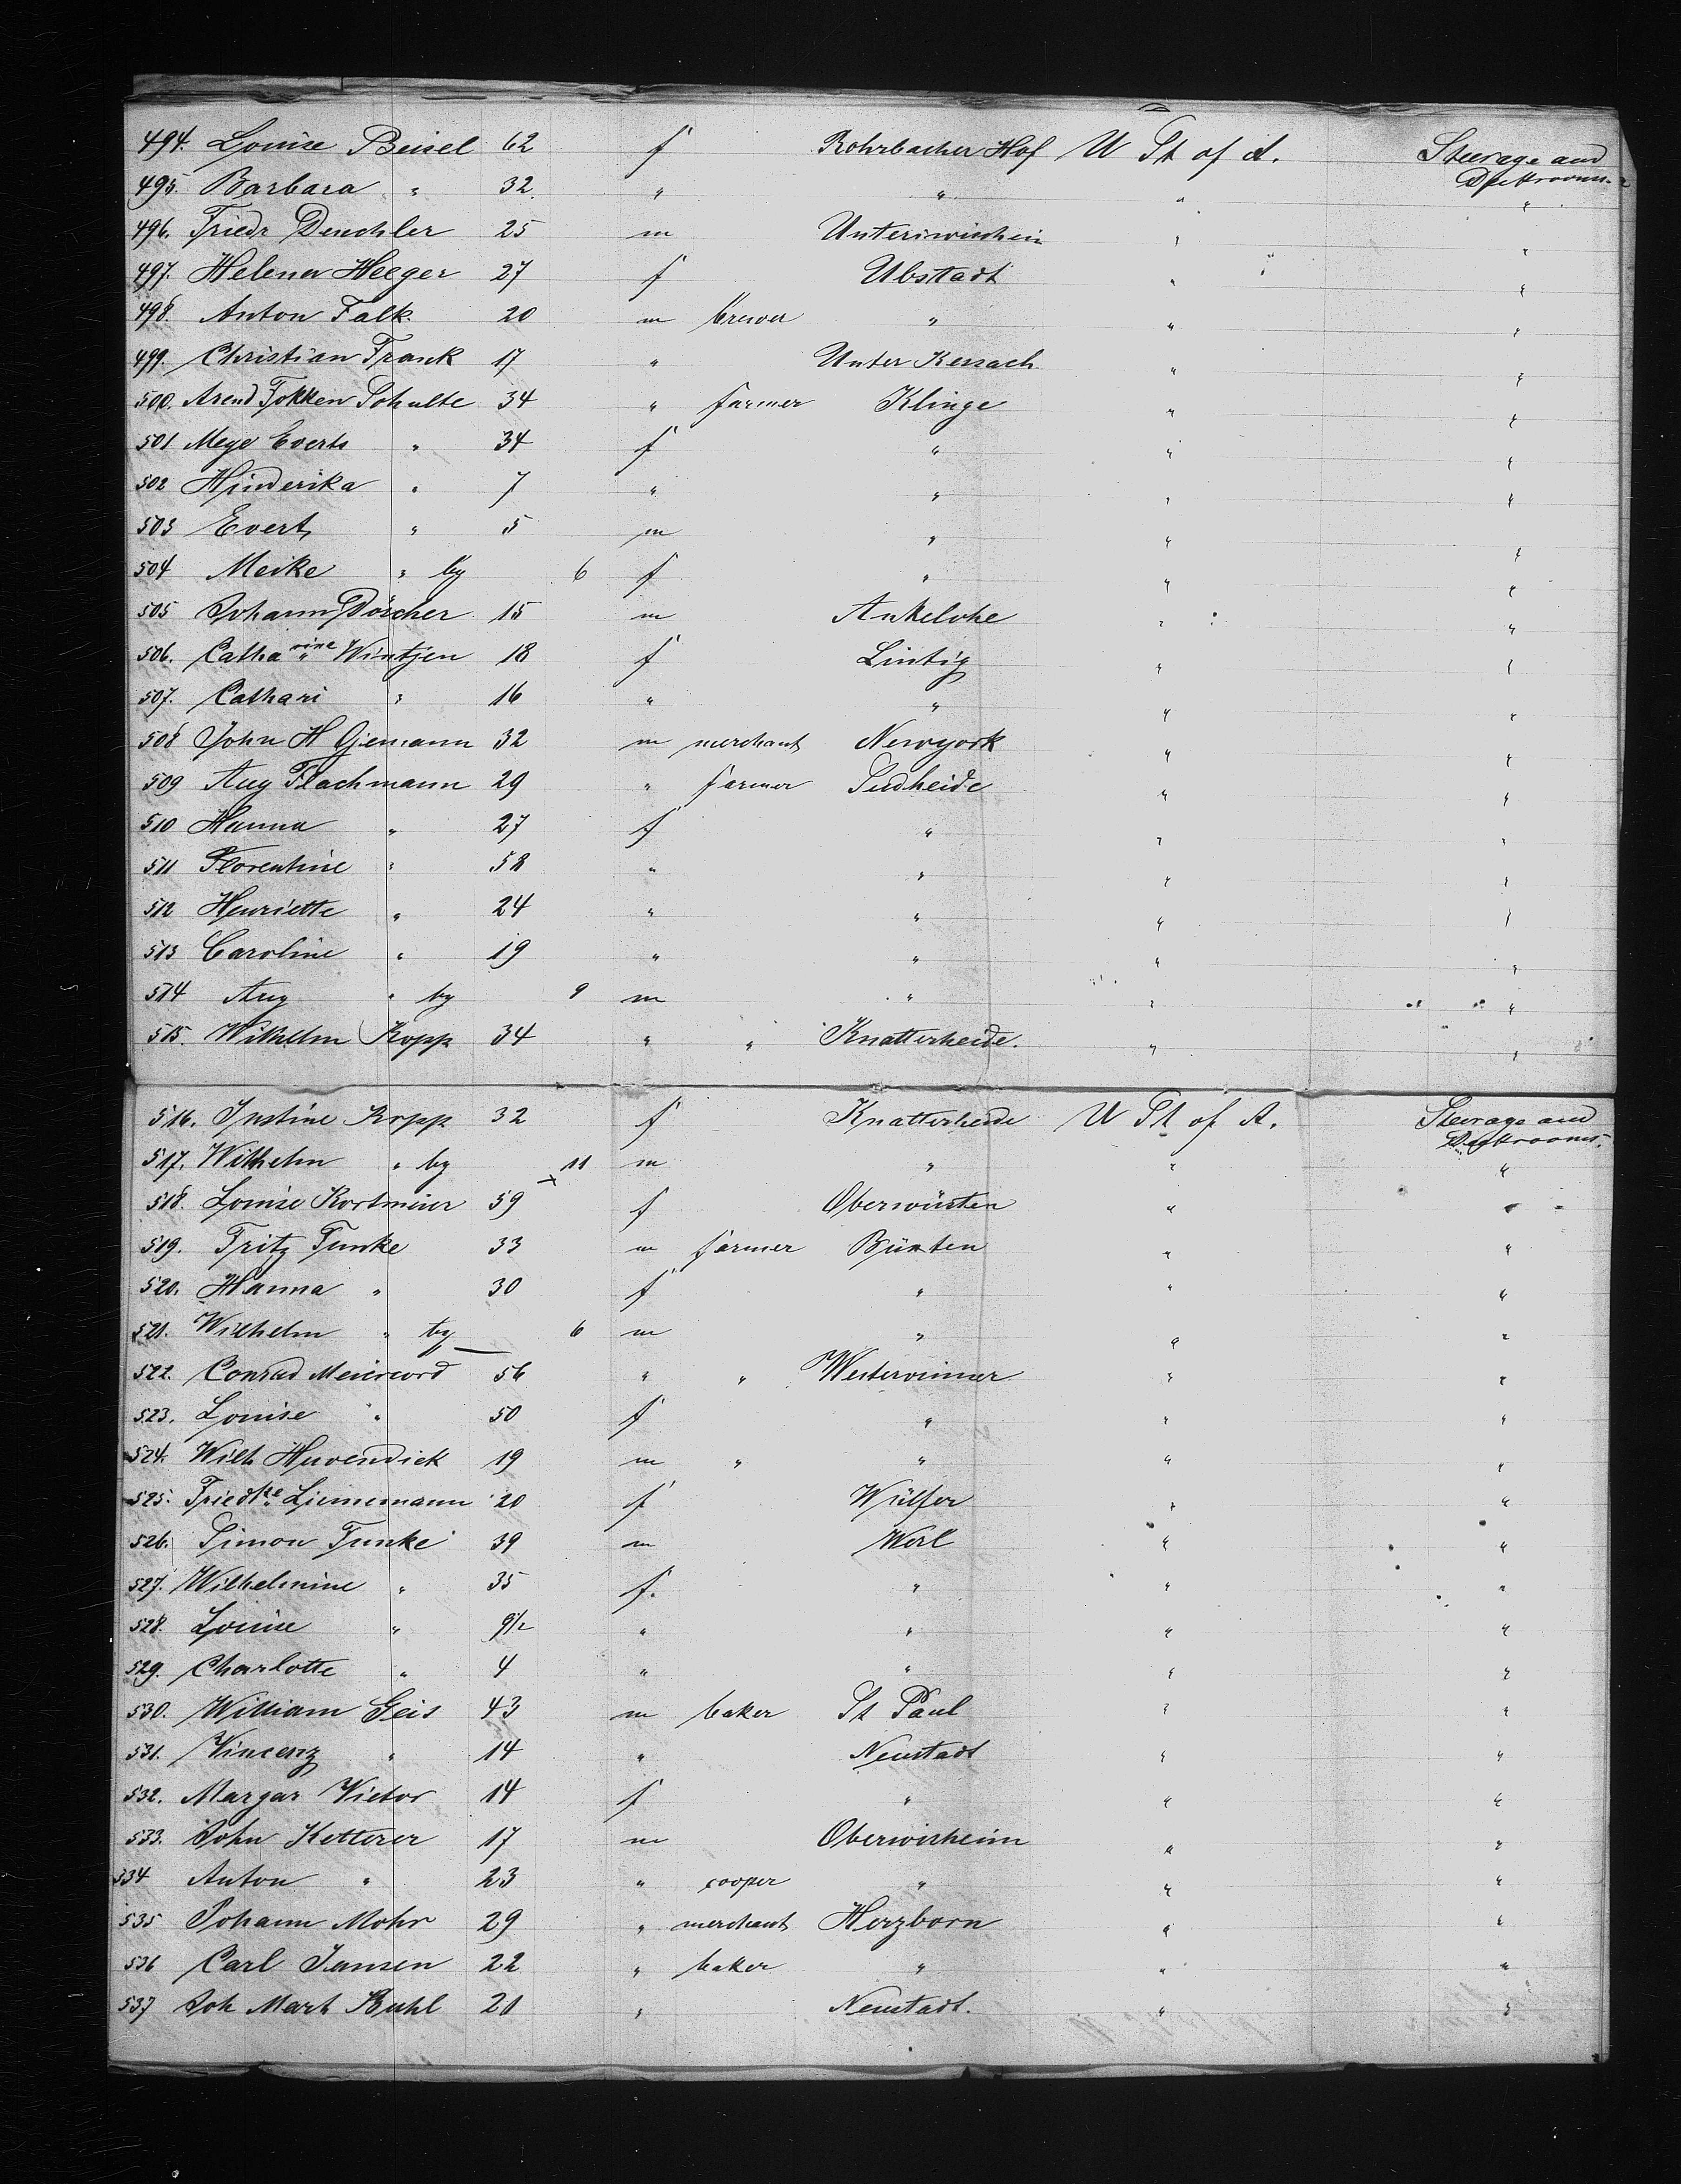 494. Louise Beisel 62 f Rohrbacher Hof U St of A. Steerage and
495. Barbara " 32 " " "
496. Friedr Deuchler 25 m " "
497. Helena Heeger 27 f Ubstadt " "
498. Anton Falk 20 m brewer " " "
499. Christian Frank 17 " Unter Kessach " "
500. Arend Fokken Schulte 34 " farmer Klinge " "
501 Meye Everts " 34 f " " "
502 Hinderika " 7 " " " "
503 Evert " 5 m " " "
504 Meike " by 6 f " " "
505 Johann Döscher 15 m Ankelohe " "
506. Catharine Wintjen 18 f Lintig " "
507. Cathari " 16 " " " "
508 John H Gjemann 32 m merchant Newyork " "
509 Aug Flachmann 29 " farmer Sudheide " "
510 Hanna " 27 f " " "
511 Florentine " 58 " " " "
512 Henriette " 24 " " " "
513 Caroline " 19 " " " "
514 Aug " by 9 m " " "
515. Wilhelm Kopp 34 " " Knatterheide. " "
516. Justine Kopp 32 f Knatterheide U St of A. Steerage and
517. Wilhelm " by 11 m " " "
518. Louise Kortmeier 59 f Oberwüsten " "
519. Fritz Funke 33 m farmer Bünten " "
520. Hanna " 30 f " " "
521. Wilhelm " by 6 m " " "
522. Conrad Meiercord 56 " " " "
523. Louise " 50 f " " "
524. Wilh Huvendiek 19 m " " " "
525. Friedke Liememann 20 f Wülfer " "
526. Simon Funke 39 m Werl " "
527. Wilhelmine " 35 f. " " "
528. Louise " 9½ " " " "
529. Charlotte " 4 " " " "
530. William Geis 43 m baker St Paul " "
531. Vincenz " 14 " Neustadt " "
532. Margar Victor 14 f " " "
533. John Ketterer 17 m Oberwisheim " "
534 Anton " 23 " cooper " " "
535 Johann Mohr 29 " merchant Herzborn " "
536 Carl Jansen 22 " baker " " "
537 Joh Mart Buhl 20 " Neustadt. " "